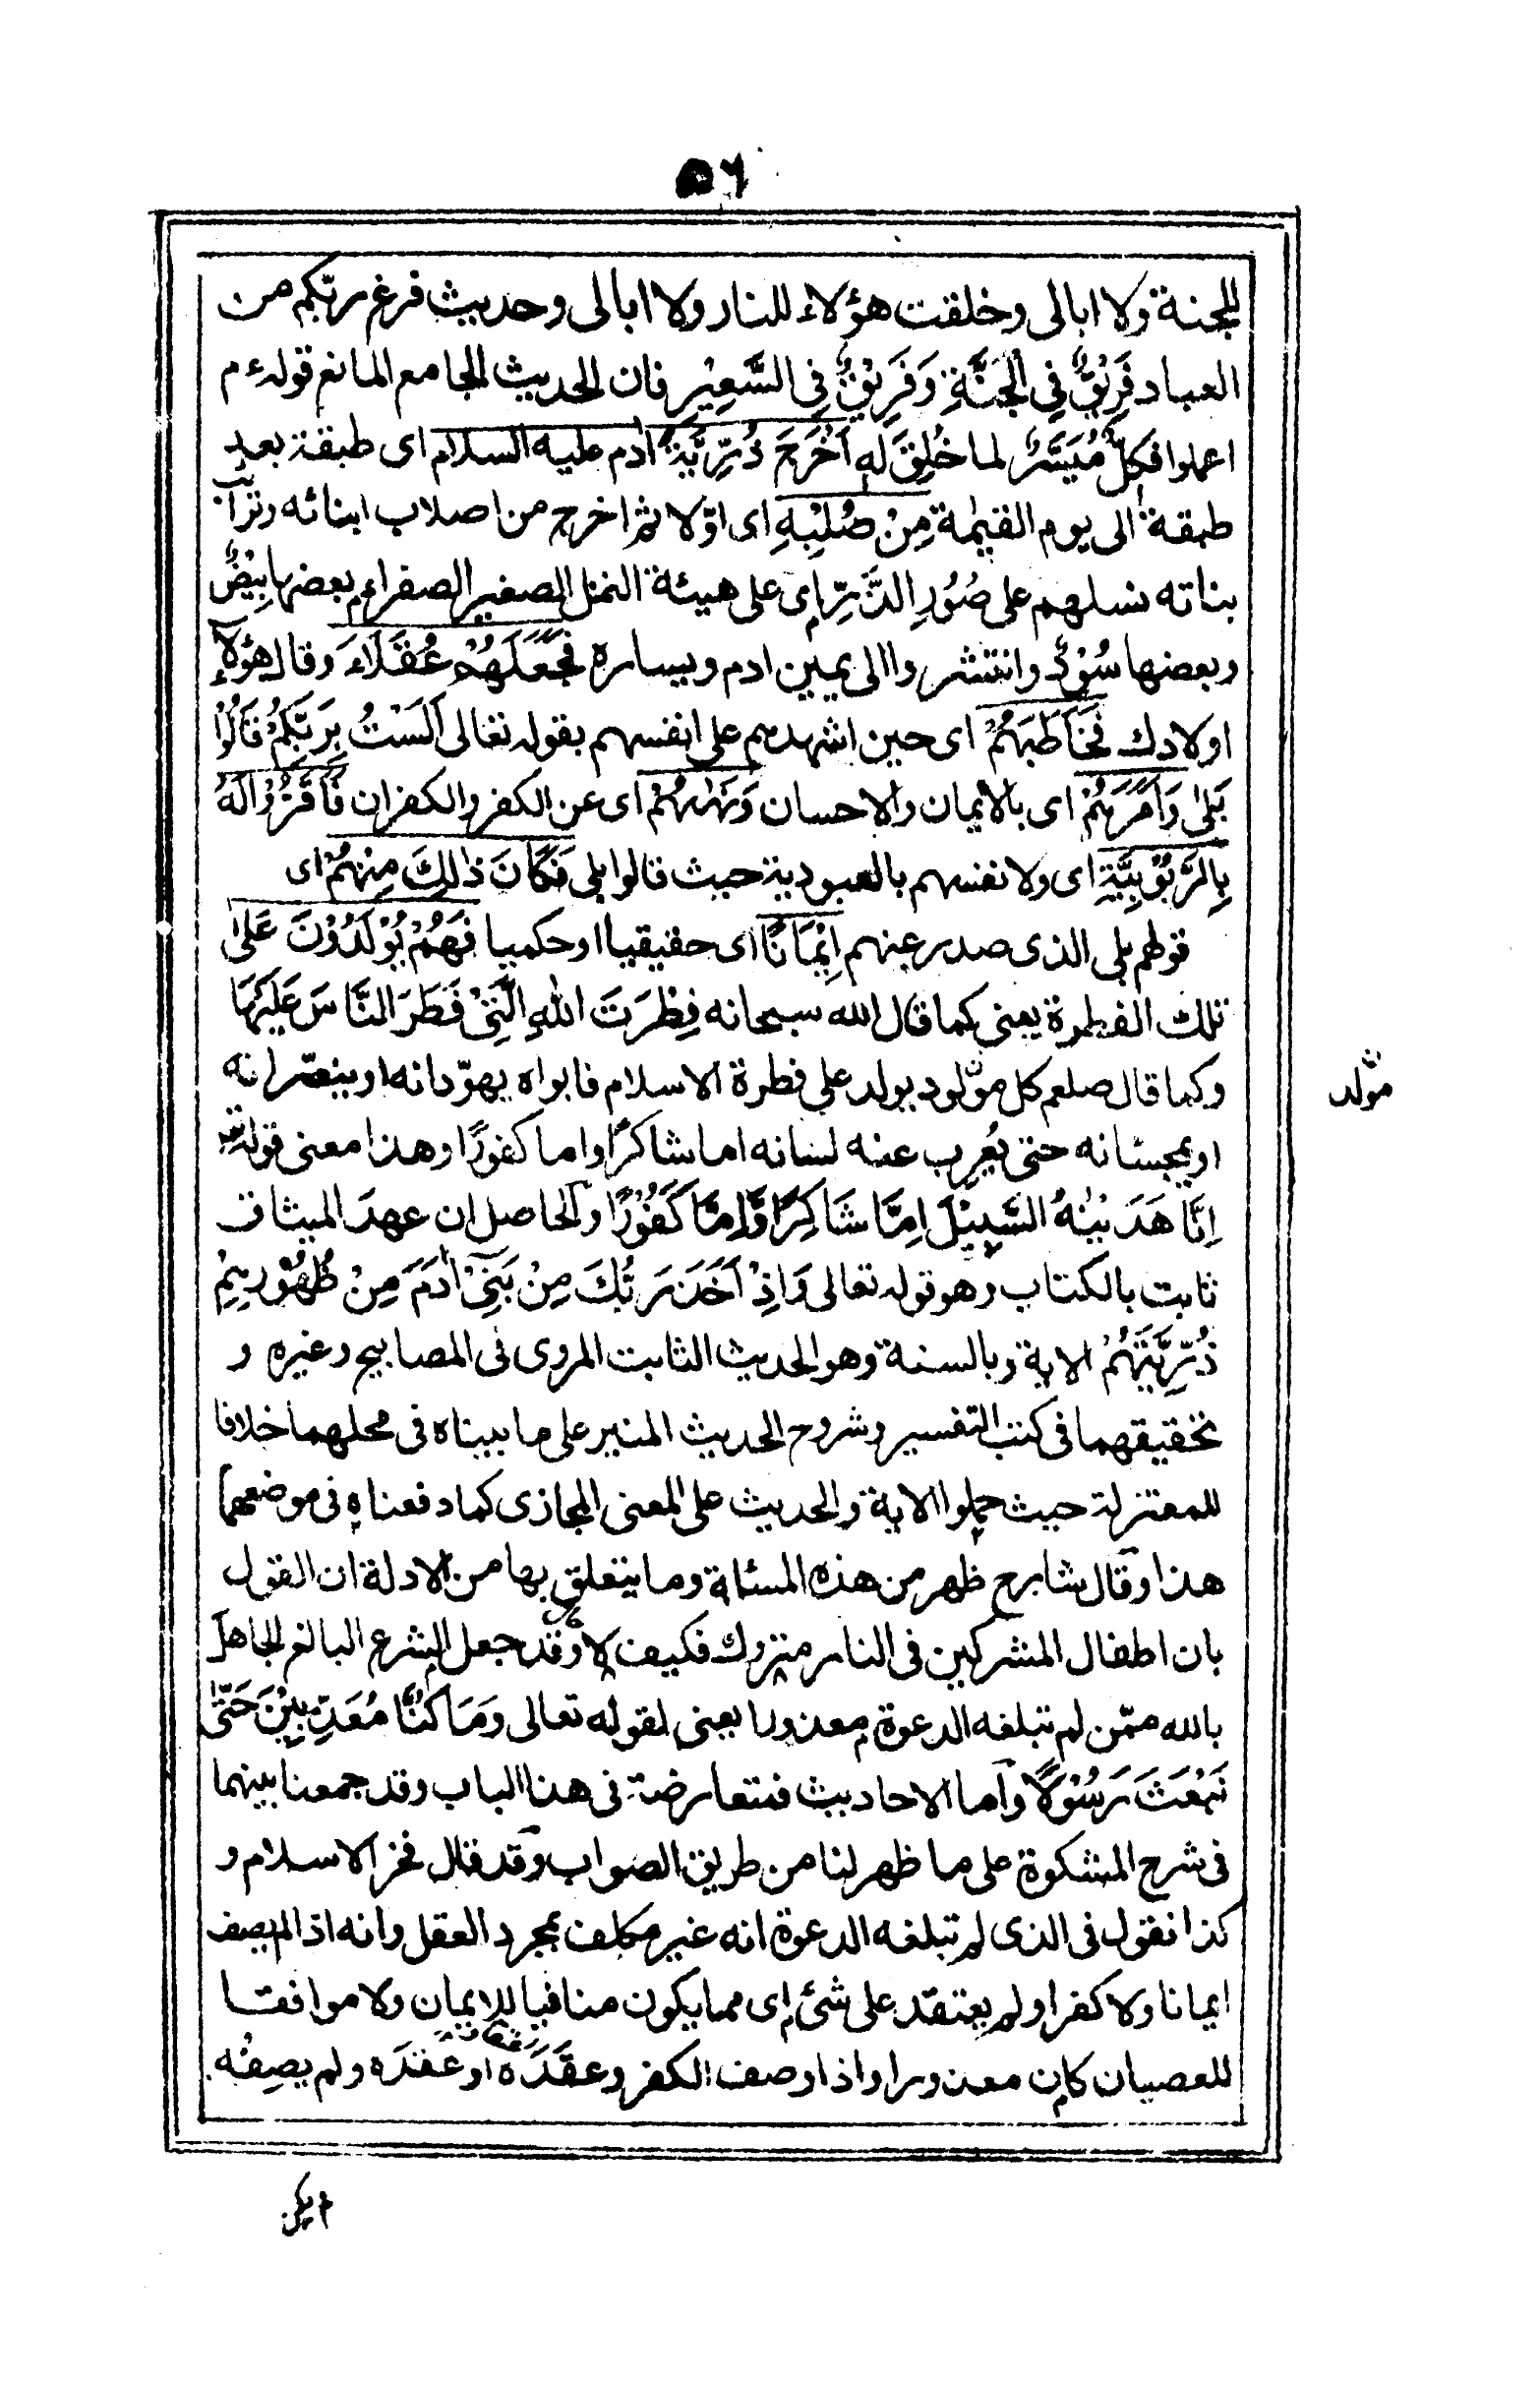 ٥٦
للجنة ولا ابالى وخلقت هؤلاء للنار ولا ابالى وحديث فرغ ربّكم من
العباد فَرِيْقٌ فِى الْجَنَّةِ وَفَرِيْقٌ فِى السَّعِيْرِ فان الحديث الجامع المانع قوله ءم
اعملوا فكلٌّ مُيَسَّرٌ لما خُلِقَ له اَخْرَجَ ذُرِّيَّةَ اٰدم عليه السلام اى طبقة بعد
طبقة الى يوم القيٰمة مِنْ صُلْبِهِ اى اوّلا ثم اخرج من اصلاب ابنائه وترآئب
بناته نسلهم على صُوَرِ الذَّرِّ اى على هيئة النمل الصغير الصفراء بعضها بِيْضٌ
وبعضها سُوْدٌ وانتشروا الى يمين ادم ويساره فَجَعَلَهُمْ عُقَلَاءَ وقال هؤلآءِ
اولادك فَخَاطَبَهُمْ اى حين اشهدهم على انفسهم بقوله تعالى اَلَسْتُ بِرَبِّكُمْ قَالُوْا
بَلٰى وَاَمَرَهُمْ اى بالايمان والاحسان وَنَهٰىهُمْ اى عن الكفر والكفران فَاَقَرُّوْا لَهُ
بِالرَّبُوْبِيَّةِ اى ولانفسهم بالعبودية حيث قالوا بلى فَكَانَ ذٰلِكَ مِنْهُمْ اى
قولهم بلى الذى صدر عنهم اِيْمَانًا اى حقيقيا او حكميا فَهُمْ يُوْلَدُوْنَ عَلٰى
تلك الفطرة يعنى كما قال الله سبحانه فِطْرَتَ اللهِ الَّتِىْ فَطَرَ النَّاسَ عَلَيْهَا
وكما قال صلعم كل مولود يولد على فطرة الاسلام فابواه يهوّدانه او ينصّرانه
مولد
او يمجسانه حتى يُعرب عنه لسانه اما شاكرًا واما كفورًا وهذا معنى قوله تعـ
اِنَّا هَدَيْنٰهُ السَّبِيْلَ اِمَّا شَاكِرًا وَّاِمَّا كَفُوْرًا والحاصل ان عهدَ الميثاق
ثابت بالكتاب وهو قوله تعالى وَاِذْ اَخَذَ رَبُّكَ مِنْ بَنِىْٓ اٰدَمَ مِنْ ظُهُوْرِهِمْ
ذُرِّيَّتَهُمْ الاية وبالسنة وهو الحديث الثابت المروى فى المصابيح وغيره و
تحقيقهما فى كتب التفسير وشروح الحديث المنير على ما بيناه فى محلهما خلافا
للمعتزلة حيث حملوا الاية والحديث على المعنى المجازى كما دفعناه فى موضعهما
هذا وقال شارح ظهر من هذه المسئلة وما يتعلق بها من الادلة ان القول
بان اطفال المشركين فى النار متروك فكيف لا وقد جعل الشرع البالغ الجاهل
بالله ممّن لم تبلغه الدعوة معذورا يعنى لقوله تعالى وَمَا كُنَّا مُعَذِّبِيْنَ حَتّٰى
نَبْعَثَ رَسُوْلًا واما الاحاديث فمتعارضة فى هذا الباب وقد جمعنا بينهما
فى شرح المشكوة على ما ظهر لنا من طريق الصواب وقد قال فخر الاسلام و
كذا نقول فى الذى لم تبلغه الدعوة انه غير مكلف بمجرد العقل وانه اذا لم يصف
ايمانا ولا كفرا ولم يعتقد على شئ اى مما يكون منافيا للايمان ولا موافقا
للعصيان كان معذورا واذا وصف الكفر وعقَدَه او عقده ولم يصِفْه